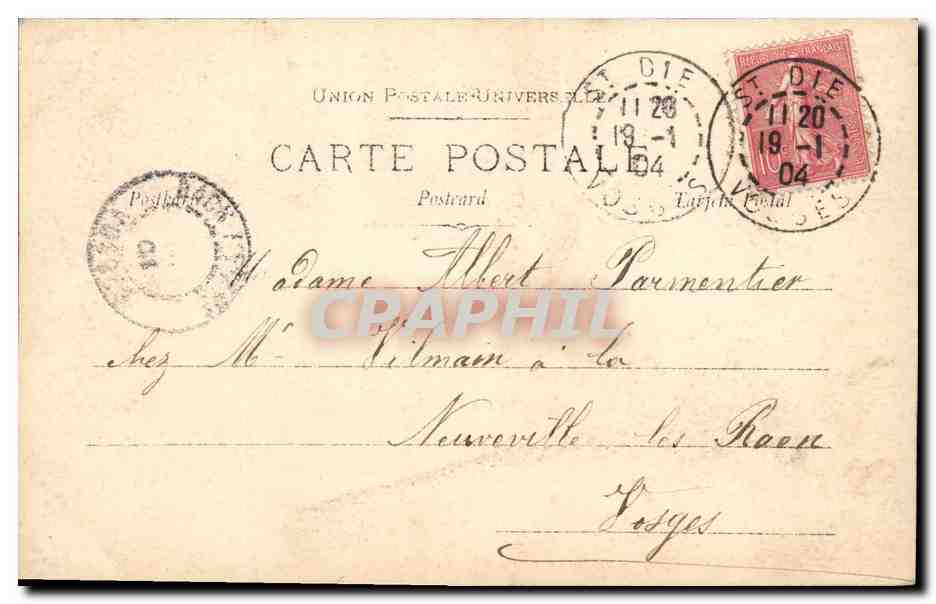 UNION POSTALE UNIVERSELLE
CARTE POSTALE
Postkarte Postcard Tarjeta Postal
RÉPUBLIQUE FRANÇAISE
10
ST DIE
11 20
19 -1
04
VOSGES
ST DIE
11 20
19 -1
04
VOSGES
Madame Albert Parmentier
chez Mr Vilmain à la
Neuveville les Raon
Vosges
CPRAPHIL